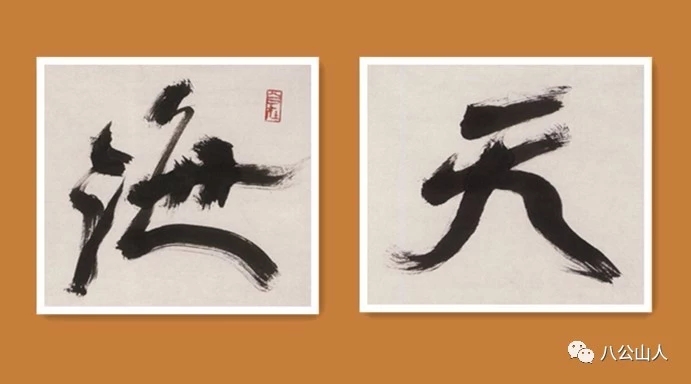 天海
八公山人